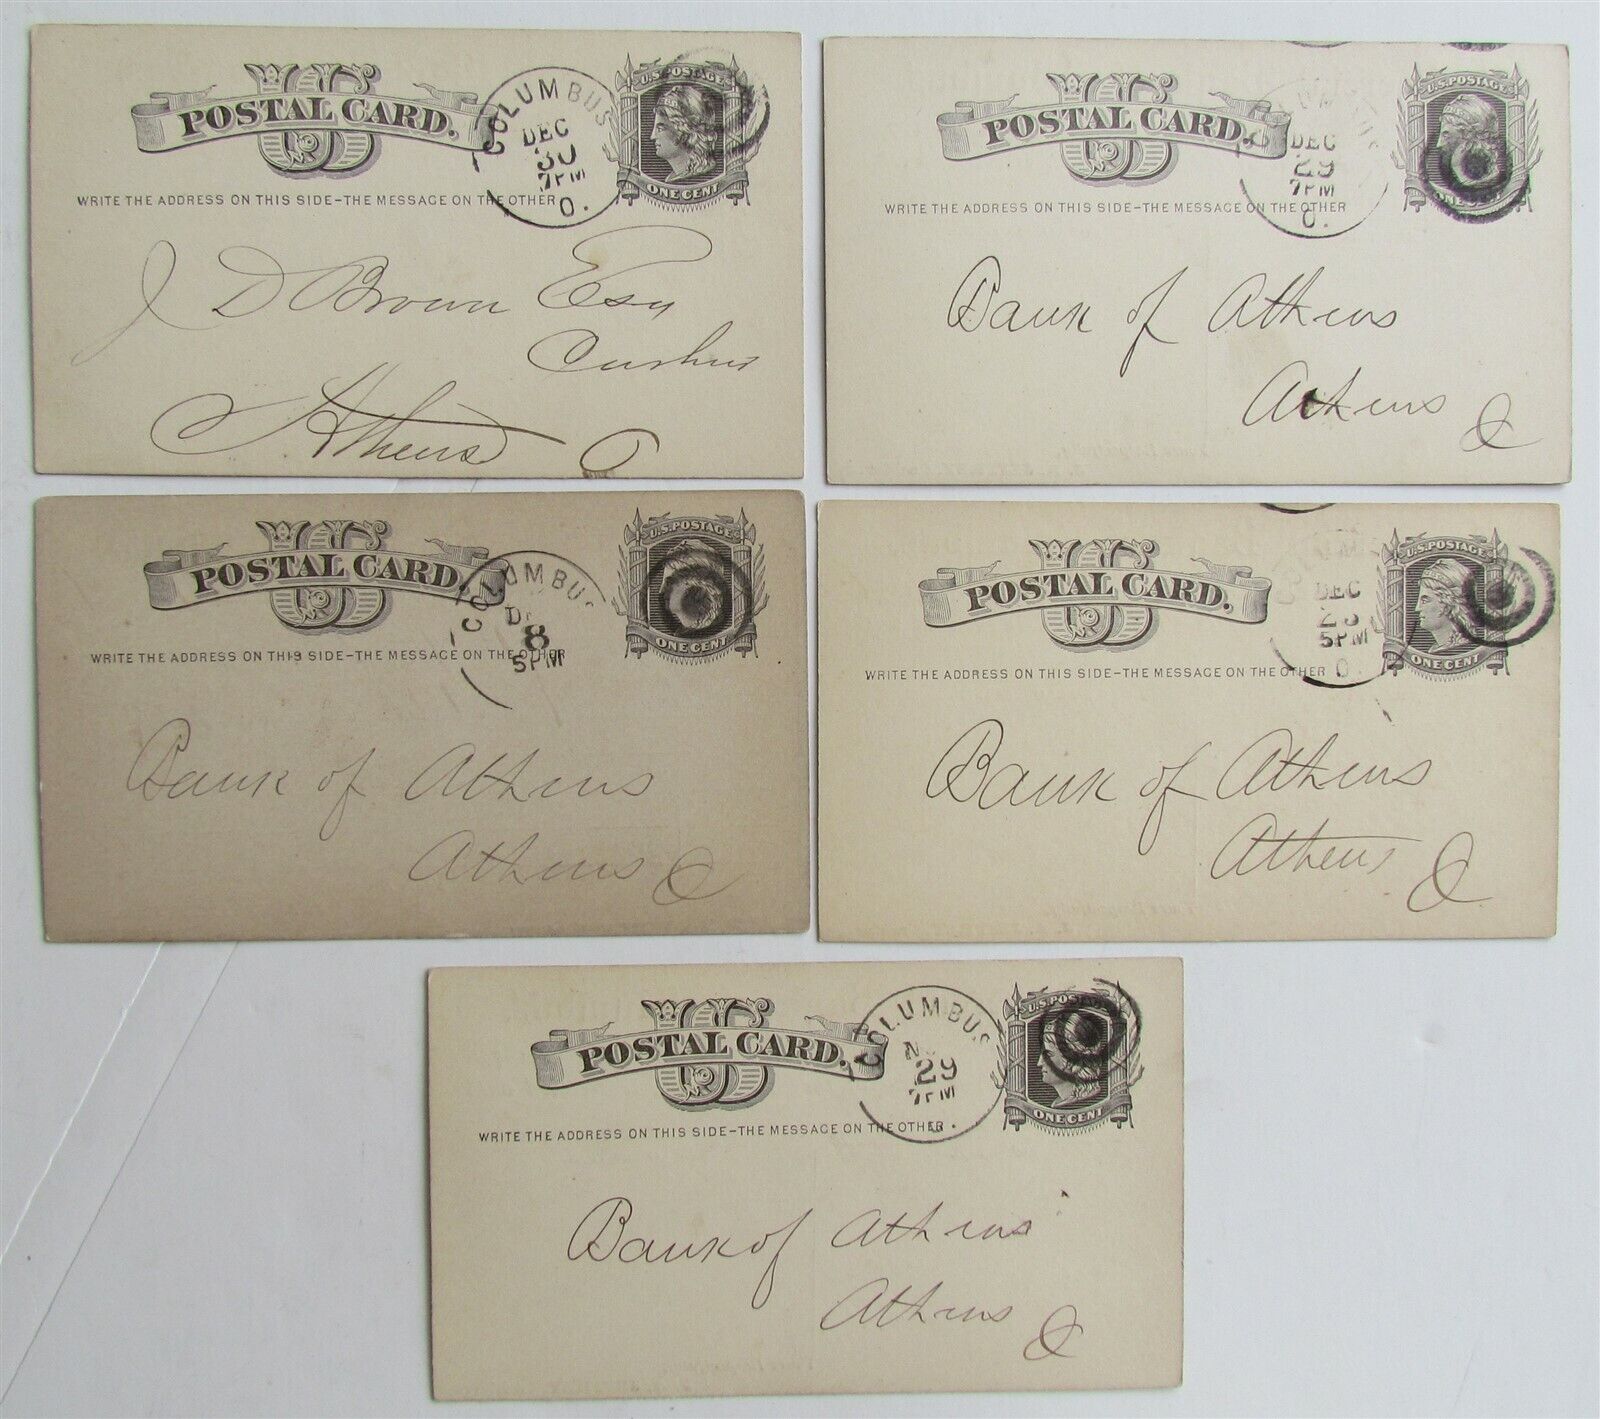 U S
POSTAL CARD.
WRITE THE ADDRESS ON THIS SIDE-THE MESSAGE ON THE OTHER
COLUMBUS
DEC
30
7PM
O.
U.S. POSTAGE
ONE CENT
J D Brown Esq
Cashier
Athens O
U S
POSTAL CARD.
WRITE THE ADDRESS ON THIS SIDE-THE MESSAGE ON THE OTHER
DEC
29
7PM
O.
U.S. POSTAGE
ONE CENT
Bank of Athens
Athens O
U S
POSTAL CARD.
WRITE THE ADDRESS ON THIS SIDE-THE MESSAGE ON THE OTHER
COLUMBUS
8
5PM
U.S. POSTAGE
ONE CENT
Bank of Athens
Athens O
U S
POSTAL CARD.
WRITE THE ADDRESS ON THIS SIDE-THE MESSAGE ON THE OTHER
DEC
5PM
O.
U.S. POSTAGE
ONE CENT
Bank of Athens
Athens O
U S
POSTAL CARD.
WRITE THE ADDRESS ON THIS SIDE-THE MESSAGE ON THE OTHER
COLUMBUS
29
7PM
U.S. POSTAGE
ONE CENT
Bank of Athens
Athens O